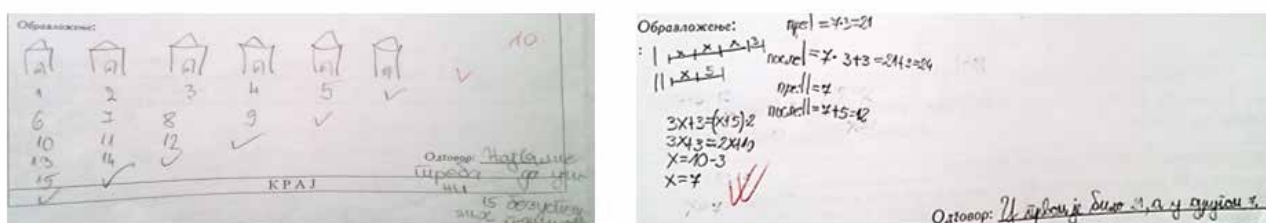 Образложење:
10
1 2 3 4 5
6 7 8 9
10 11 12
13 14
15
Одговор: Најмање
треба да учи
ни
15 дозвоље
них
КРАЈ
Образложење:
пре I = 7·3=21
I x x x 3
после I = 7·3+3=21+3=24
II x 5
пре II = 7
после II = 7+5=12
3x+3=(x+5)·2
3x+3=2x+10
x=10-3
x=7
Одговор: У првој је било 21, а у другој 7.